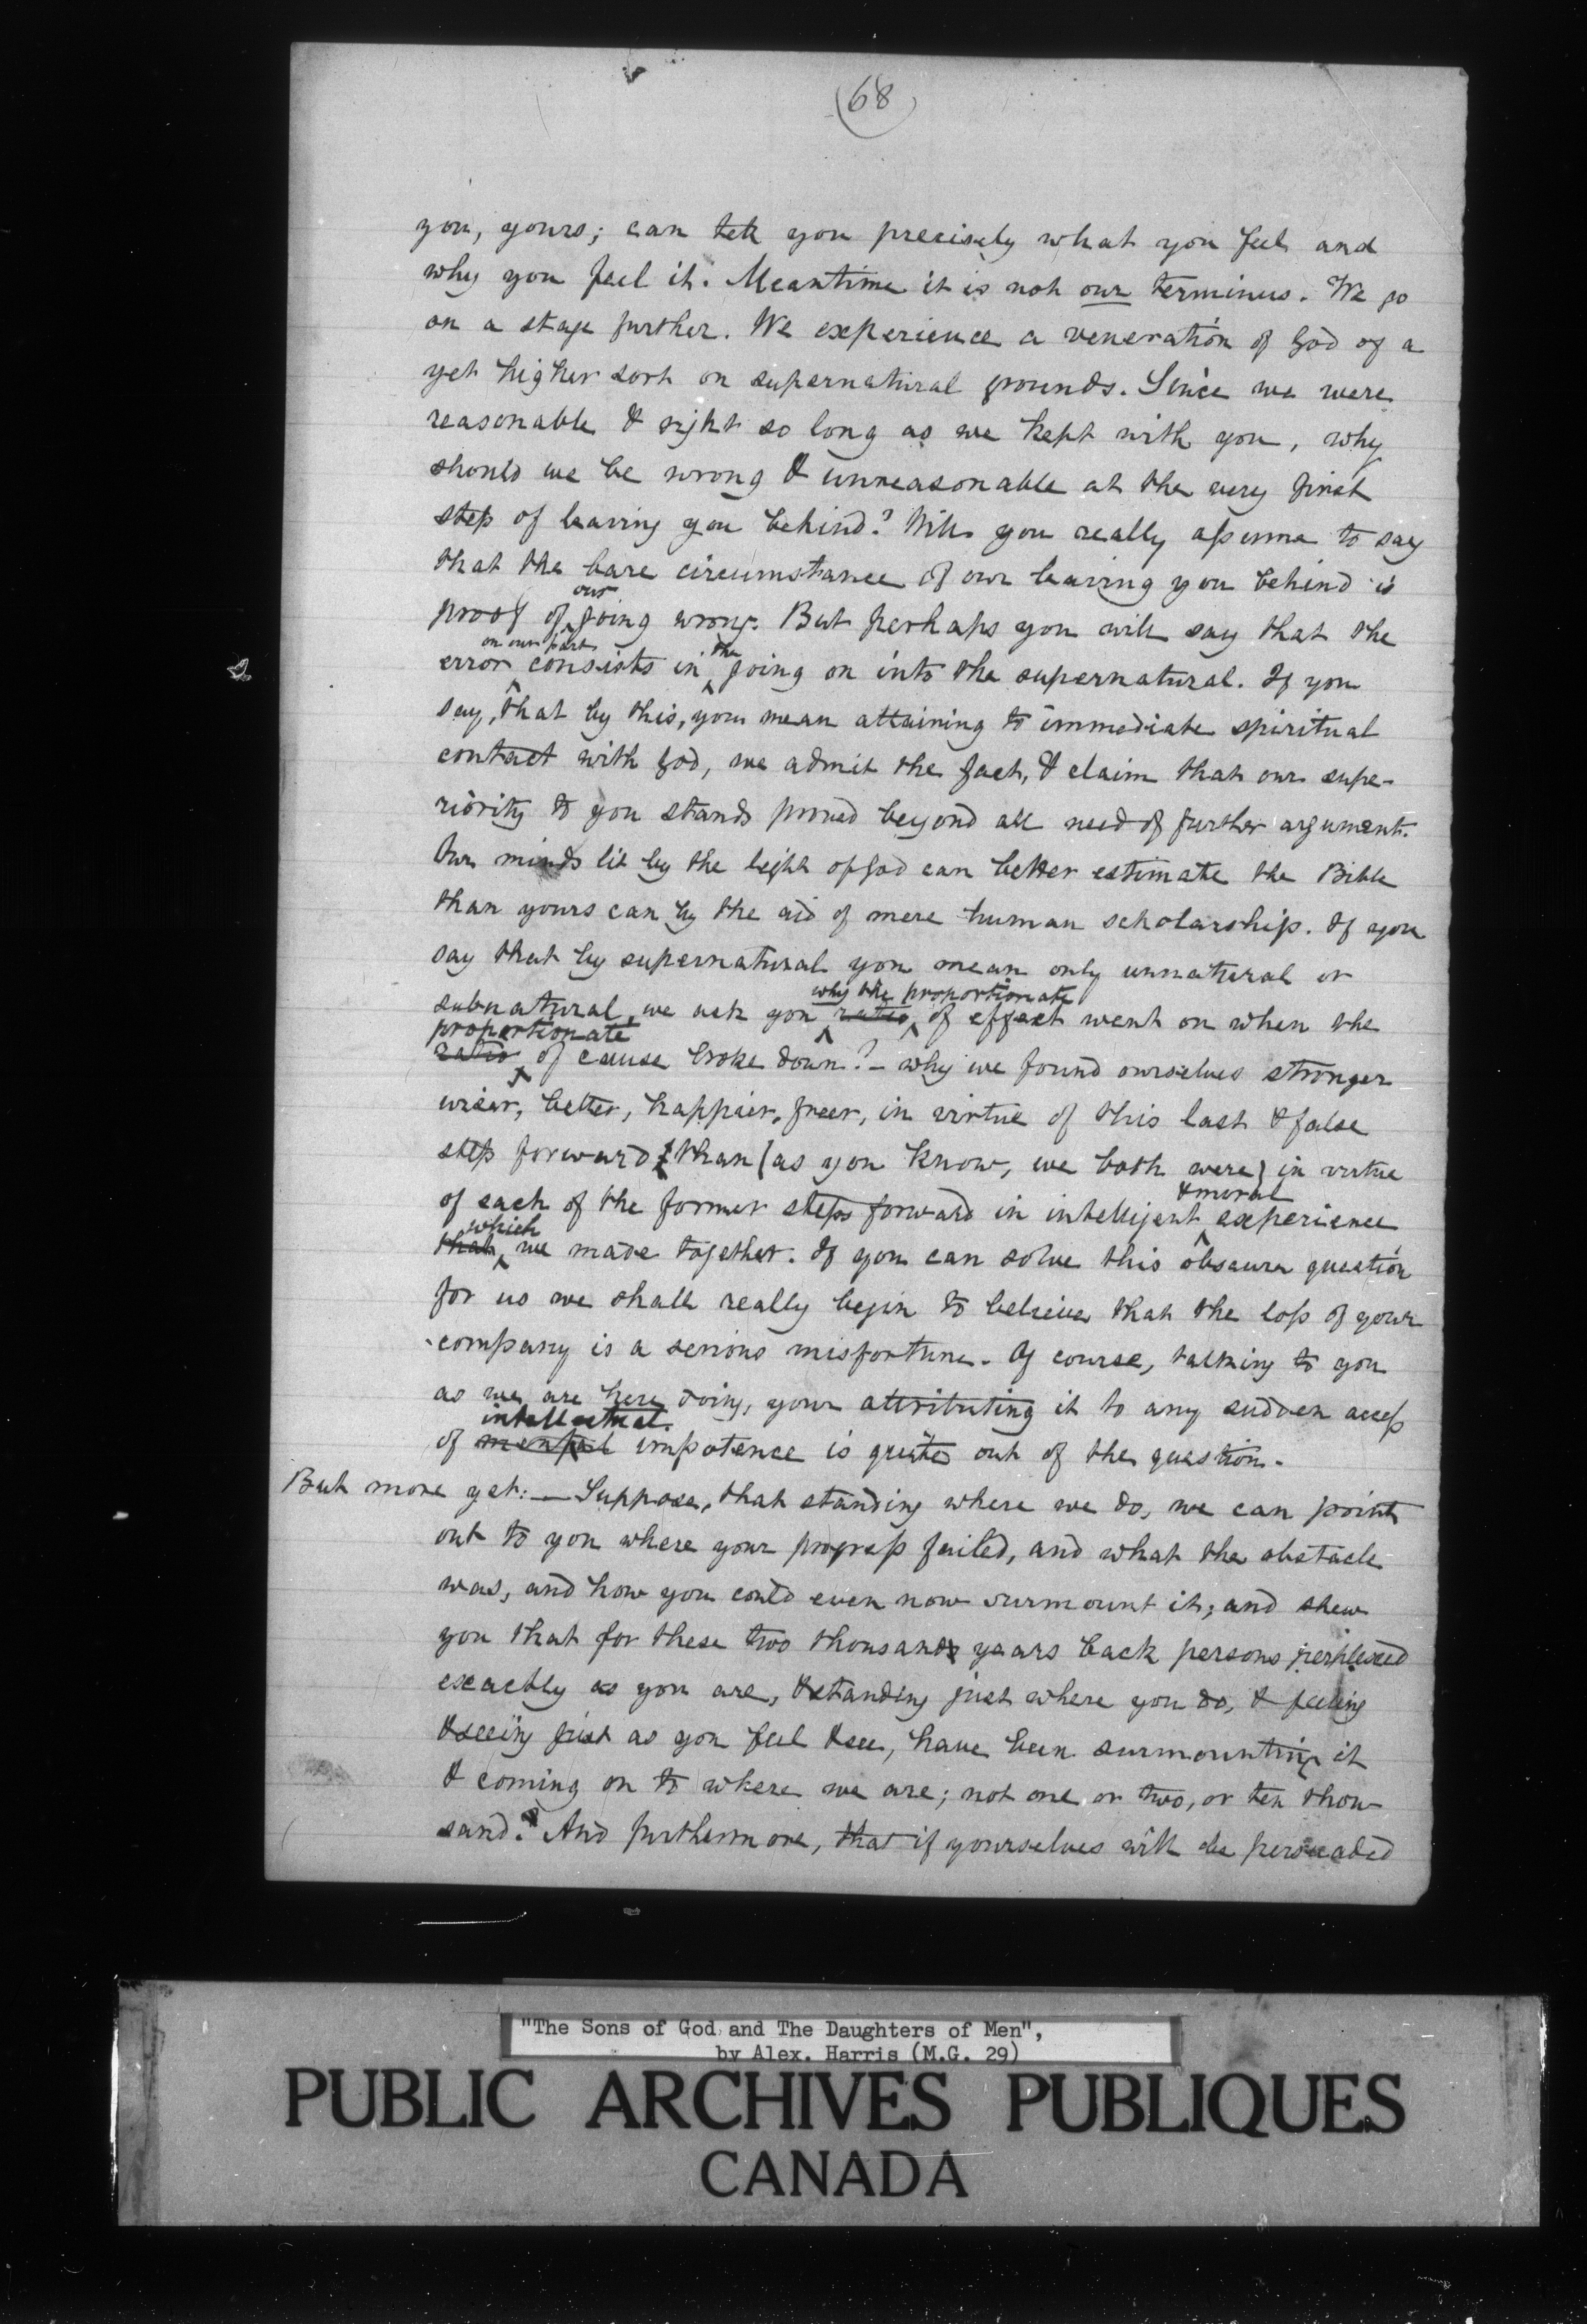 (68)
you, yours; can tell you precisely what you feel and
why you feel it. Meantime it is not our terminus. We go
on a stage further. We experience a veneration of God of a
yet higher sort on supernatural grounds. Since we were
reasonable & right so long as we kept with you, why
should we be wrong & unreasonable at the very first
step of leaving you behind? Will you really assume to say
that the bare circumstance of our leaving you behind is
proof of our going wrong. But perhaps you will say that the
error on our part consists in the going on into the supernatural. If you
say, that by this, you mean attaining to immediate spiritual
contact with God, we admit the fact, & claim that our supe-
riority to you stands proved beyond all need of further argument.
Our minds lit by the light of God can better estimate the Bible
than yours can by the aid of mere human scholarship. If you
say that by supernatural you mean only unnatural or
subnatural, we ask you ratio why the proportionate of effect went on when the
ratio proportionate of cause broke down? – why we found ourselves stronger
wiser, better, happier, freer, in virtue of this last & false
step forward than (as you know, we both were) in virtue
of each of the former steps forward in intelligent & moral experience
that which we made together. If you can solve this obscure question
for us we shall really begin to believe that the loss of your
company is a serious misfortune. Of course, talking to you
as we are here doing, your attributing it to any sudden access
of mental intellectual impotence is quite out of the question.
But more yet: — Suppose, that standing where we do, we can point
out to you where your progress failed, and what the obstacle
was, and how you could even now surmount it; and shew
you that for these two thousand years back persons perplexed
exactly as you are, & standing just where you do, & feeling
& seeing just as you feel & see, have been surmounting it
& coming on to where we are; not one or two, or ten thou-
sand? And furthermore, that if yourselves will be persuaded
"The Sons of God and The Daughters of Men",
by Alex. Harris (M.G. 29)
PUBLIC ARCHIVES PUBLIQUES
CANADA